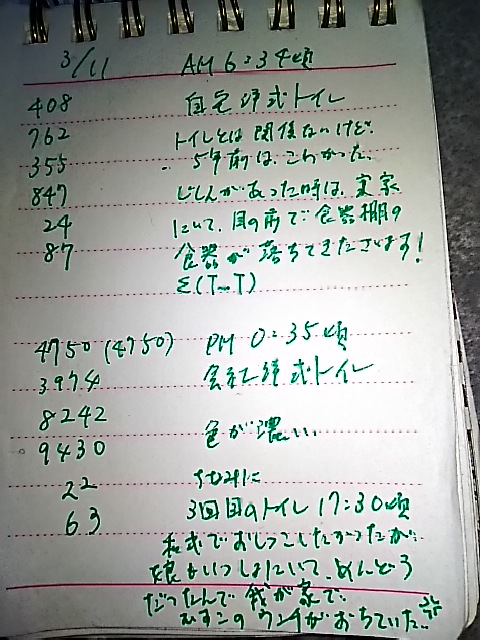 3/11 AM 6:34頃
408 自宅洋式トイレ
762 トイレとは関係ないけど、
355 5年前は、こわかった。
847 じしんがあった時は、実家
24 にいて、目の前で食器棚の
87 食器が落ちてきたざいます!
Σ(T_T)
4750 (4750) PM 0:35頃
3974 会社洋式トイレ
8242
9430 色が濃い
22 ちなみに
63 3回目のトイレ 17:30頃
和式でおしっこしたかったが、
娘もいっしょにいて、めんどう
だったんで 我が家で、
むすこの ウンチがおちていた